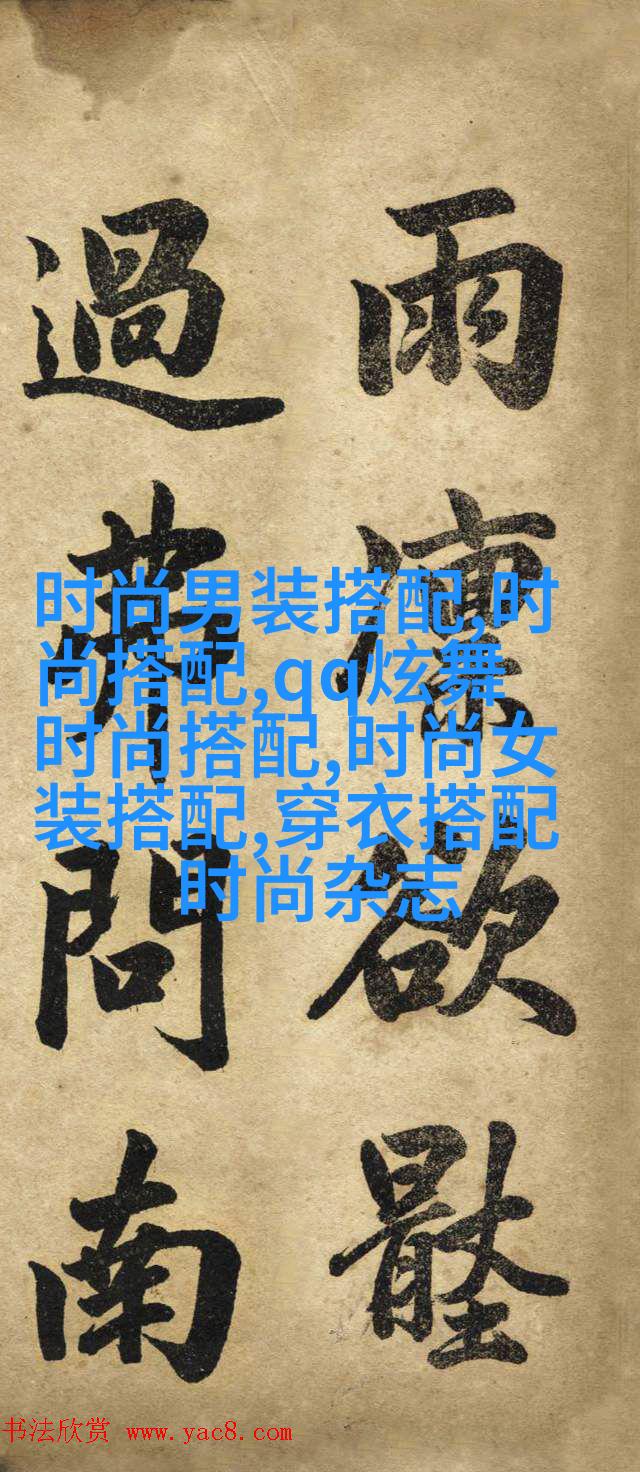 雨 欲
過 問南
时尚男装搭配,时
尚搭配,qq炫舞
时尚搭配,时尚女
装搭配,穿衣搭配
时尚杂志
书法欣赏 www.yac8.com